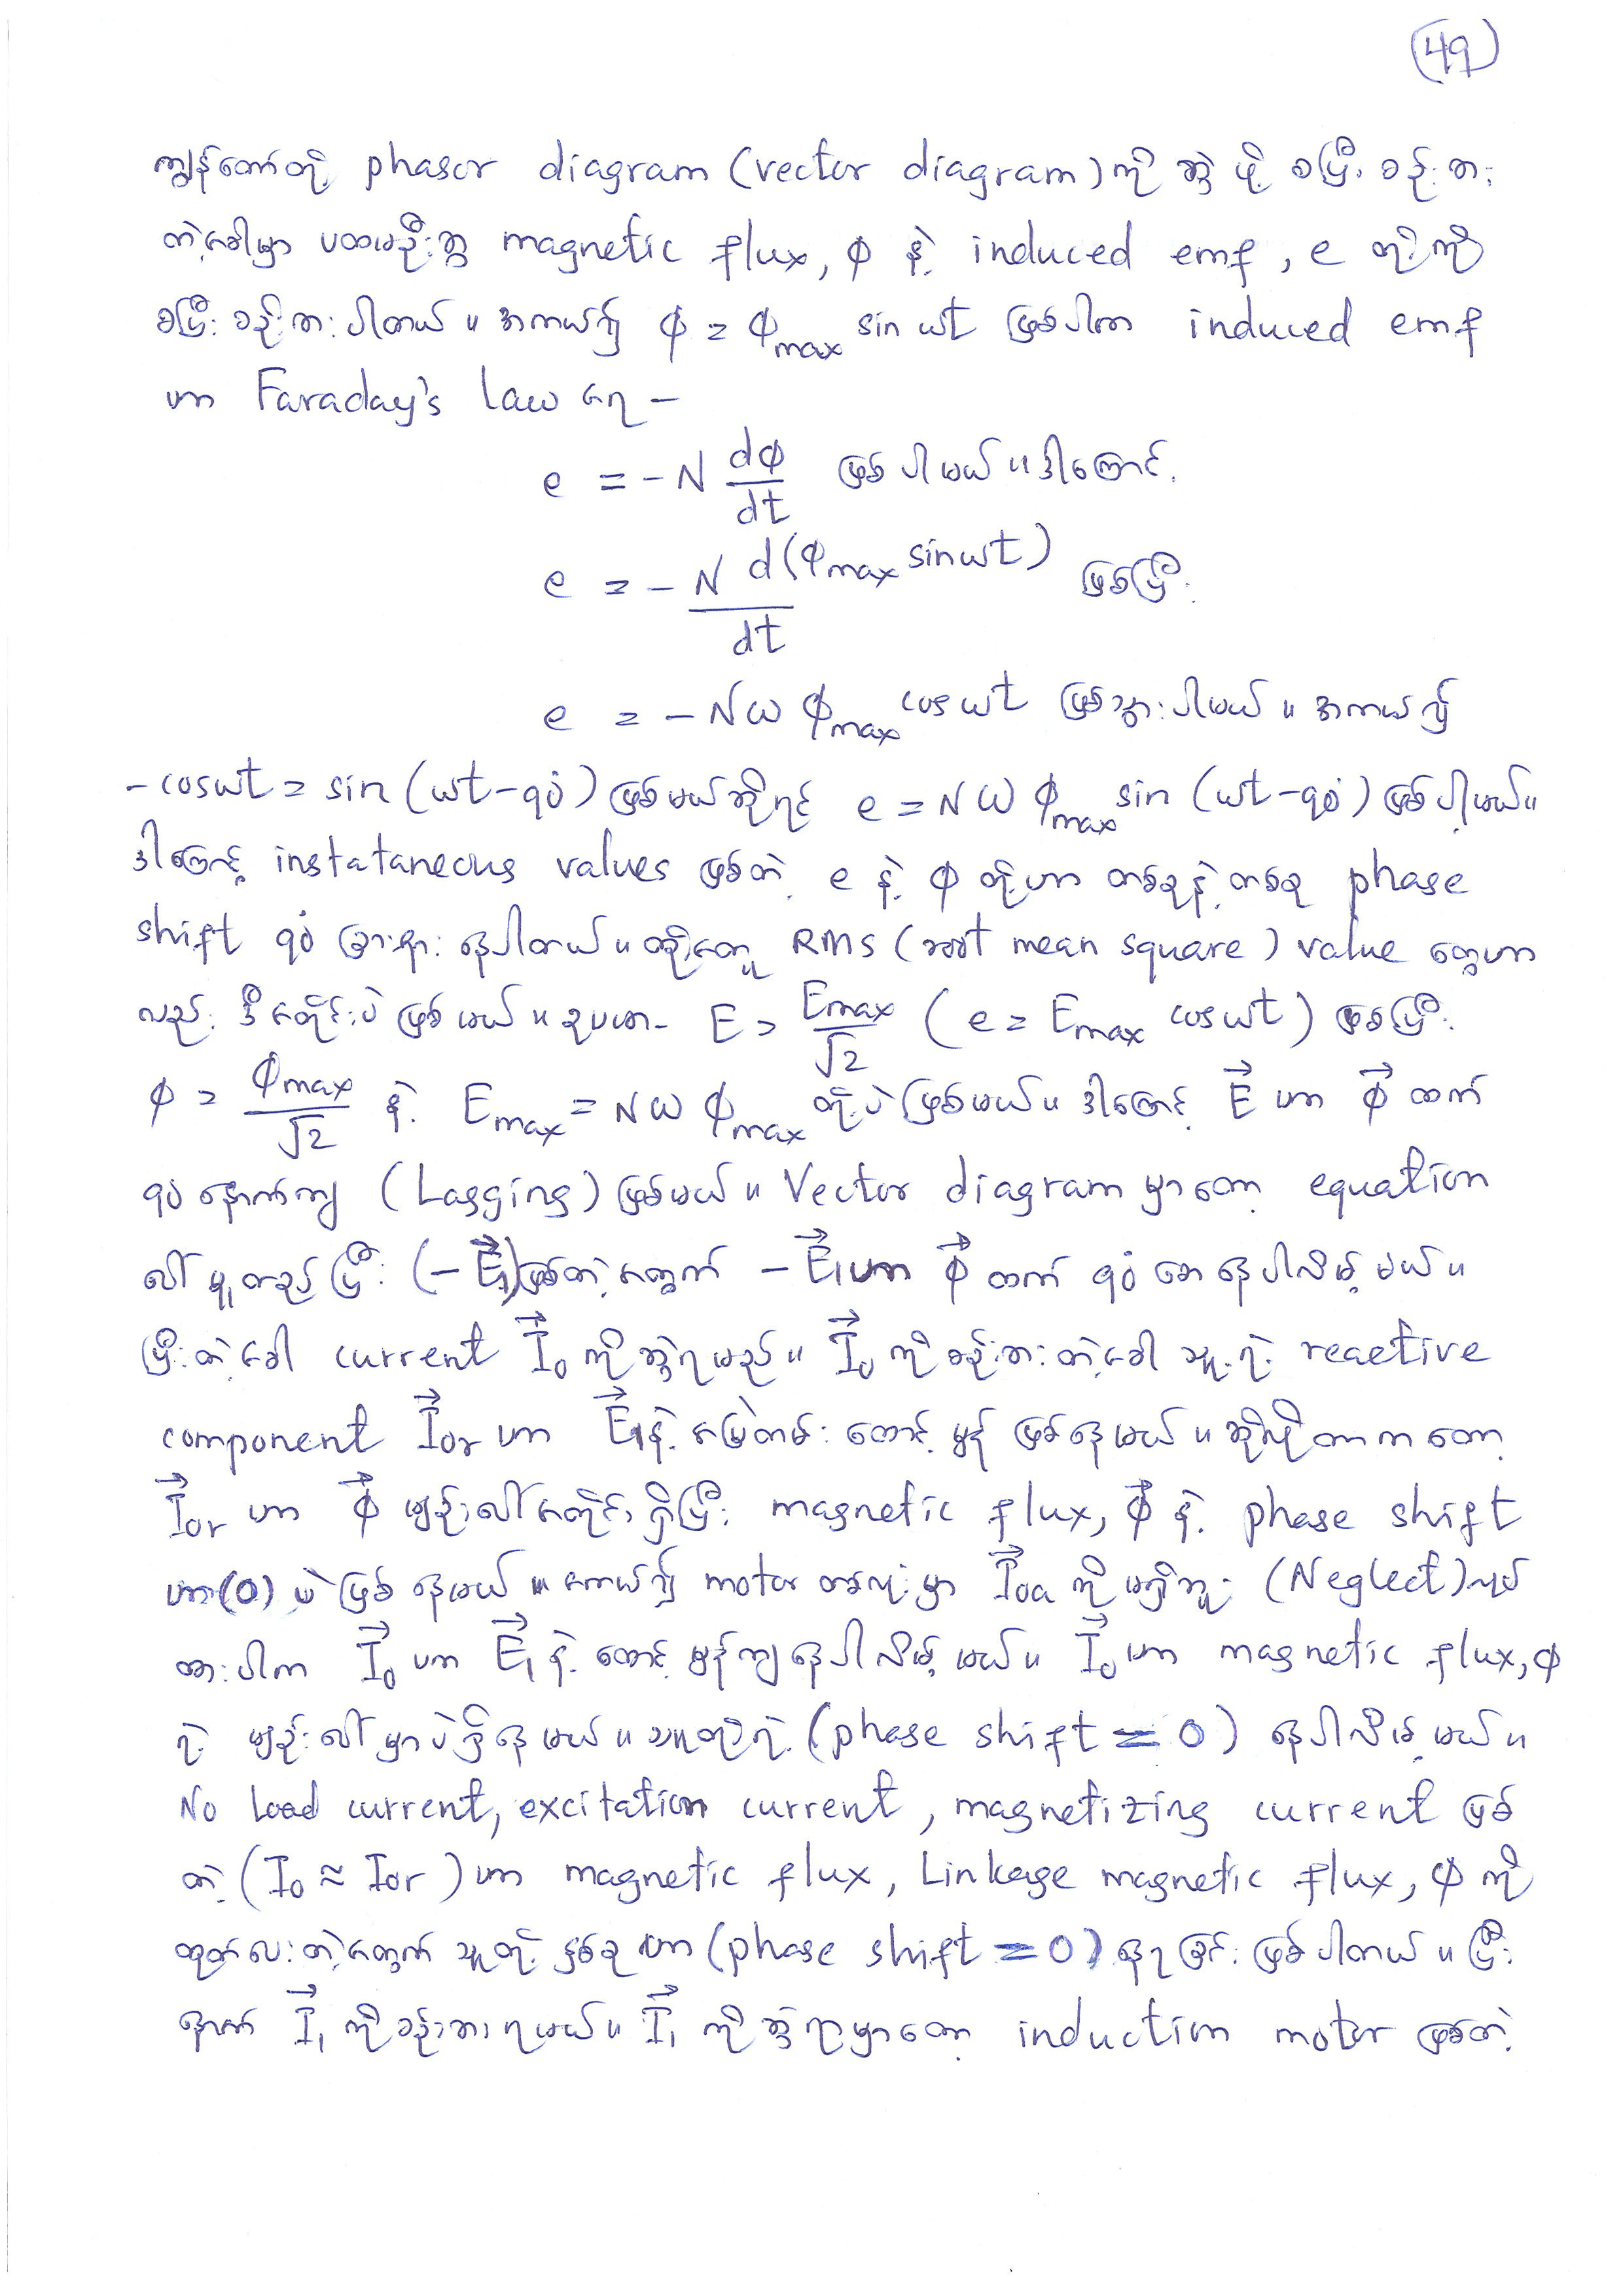 (49)
ကျွန်တော်တို့ phasor diagram (vector diagram) ကို ဆွဲ ဖို့ စပြီး စဉ်းစား
တဲ့ခေါ်မှာ ပထမဦးဆွ magnetic flux, φ နဲ့ induced emf, e တို့ကို
စပြီး စဉ်းစားပါတယ်။ အကယ်၍ φ = φmax sin ωt ဖြစ်ပါက induced emf
ဟာ Faraday's Law အရ –
e = -N dφ/dt ဖြစ်ပါမယ်။ ဒါကြောင့်
e = - N d(φmax sinωt)/dt ဖြစ်ပြီး
e = - Nω φmax cos ωt ဖြစ်သွားပါမယ်။ အကယ်၍
- cosωt = sin (ωt-90°) ဖြစ်မယ်ဆိုရင် e = Nω φmax sin (ωt-90°) ဖြစ်ပါမယ်။
ဒါကြောင့် instataneous values ဖြစ်တဲ့ e နဲ့ φ တို့ဟာ တစ်ခုနဲ့တစ်ခု phase
shift 90° ခြားနား နေပါတယ်။ ထို့အတူ RMS (root mean square) value တွေဟာ
လည်း ဒီအတိုင်းပဲ ဖြစ်မယ်။ ဥပမာ- E = Emax/√2 (e = Emax cos ωt) ဖြစ်ပြီး
φ = φmax/√2 နဲ့ Emax = Nω φmax တို့ပဲ ဖြစ်မယ်။ ဒါကြောင့် E⃗ ဟာ φ⃗ ထက်
90° နောက်ကျ (Lagging) ဖြစ်မယ်။ Vector diagram မှာတော့ equation
ပေါ်မူတည်ပြီး (-E⃗₁) ဖြစ်တဲ့အတွက် -E⃗₁ ဟာ φ⃗ ထက် 90° စော နေပါလိမ့်မယ်။
ပြီးတဲ့ခေါ် current I⃗₀ ကိုဆွဲရမည်။ I⃗₀ ကိုစဉ်းစားတဲ့ခေါ် သူ့ရဲ့ reactive
component I⃗or ဟာ E⃗₁ နဲ့ အမြဲတမ်း ထောင့်မှန် ဖြစ်နေမယ်။ ဆိုလိုတာကတော့
I⃗or ဟာ φ⃗ မျဉ်းပေါ်အတိုင်း ရှိပြီး magnetic flux, φ⃗ နဲ့ phase shift
ဟာ (0) ပဲ ဖြစ်နေမယ်။ အကယ်၍ motor တစ်လုံးမှာ I⃗oa ကိုမရှိဘူး (Neglect) လုပ်
ထားပါက I⃗₀ ဟာ E⃗₁ နဲ့ ထောင့်မှန်ကျနေပါလိမ့်မယ်။ I⃗₀ ဟာ magnetic flux, φ
ရဲ့ မျဉ်းပေါ်မှာပဲရှိနေမယ်။ သူတို့ရဲ့ (phase shift = 0) နေပါလိမ့်မယ်။
No Load current, excitation current, magnetizing current ဖြစ်
တဲ့ (I₀ ≈ Ior) ဟာ magnetic flux, Linkage magnetic flux, φ ကို
ထုတ်ပေးတဲ့အတွက် သူတို့ နှစ်ခု ဟာ (phase shift = 0) နေရခြင်း ဖြစ်ပါတယ်။ ပြီး
နောက် I⃗₁ ကိုစဉ်းစားရမယ်။ I⃗₁ ကိုဆွဲရာမှာတော့ induction motor ဖြစ်တဲ့